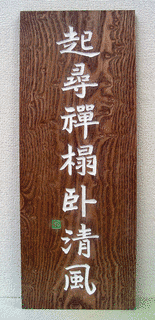 起尋禪榻卧清風